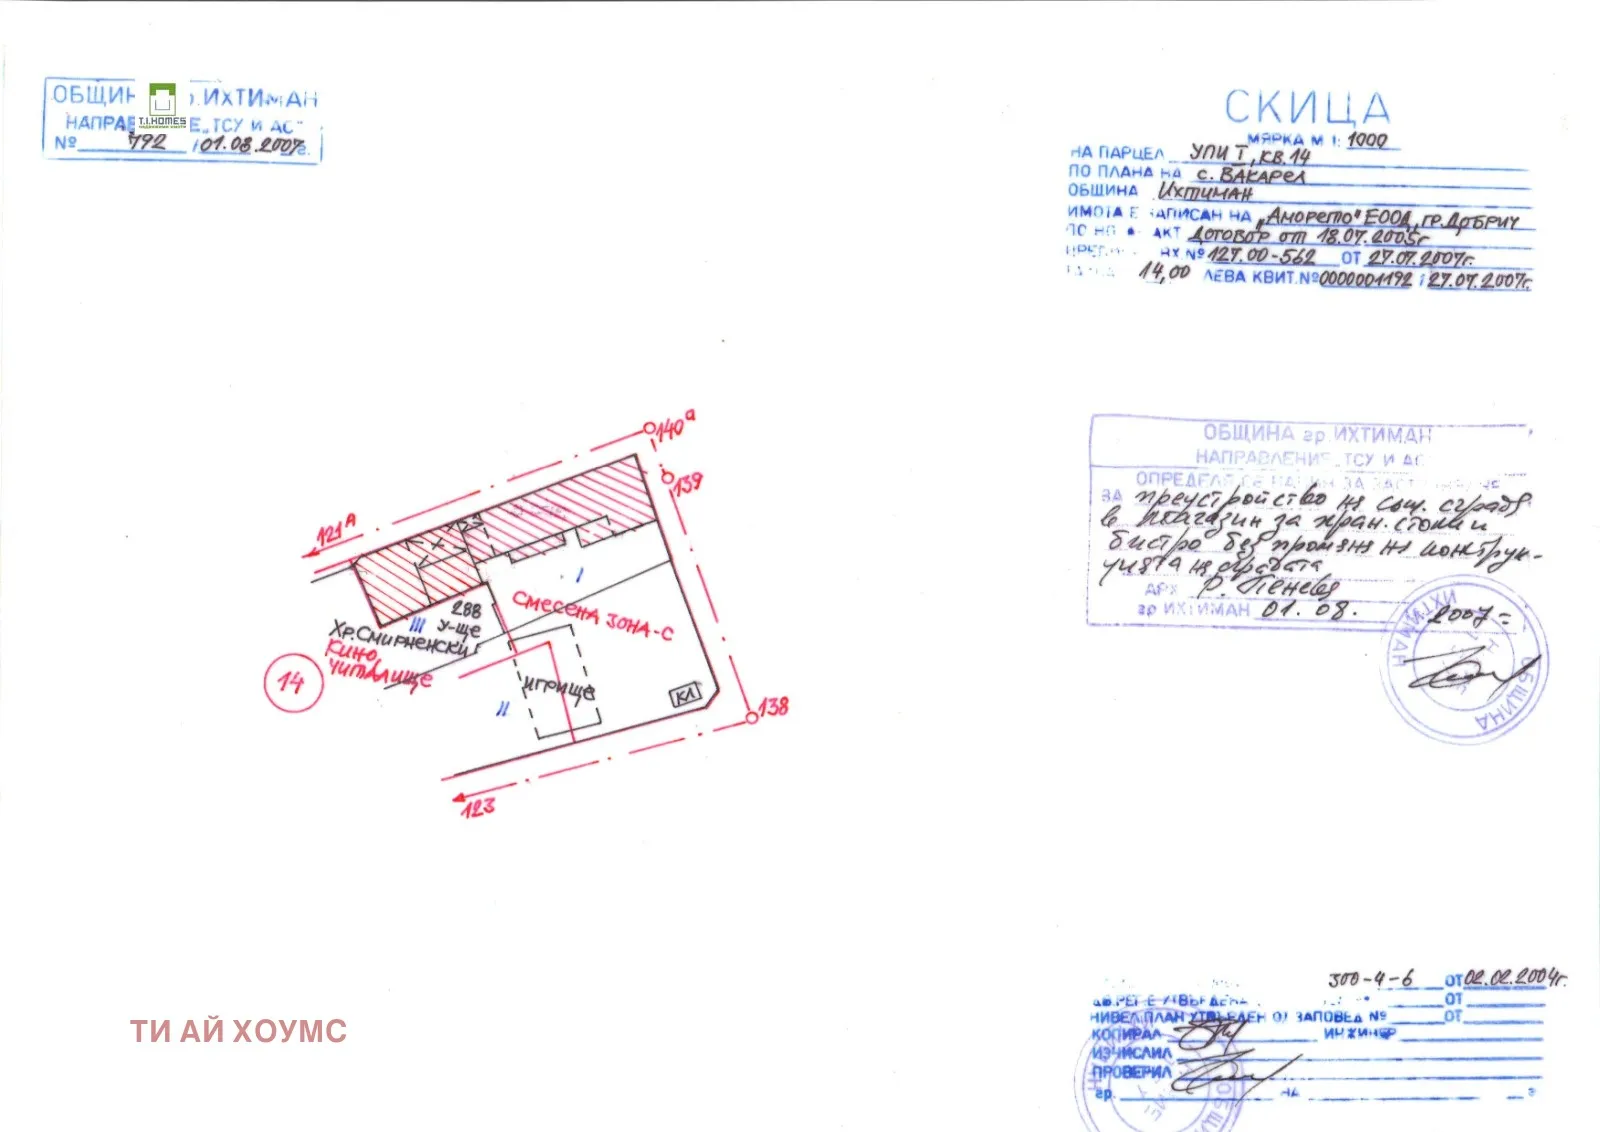 ОБЩИН .ИХТИМАН
НАПРАВ Е„ТСУ И АС"
№ 792 / 01.08.2007г.
T.I.HOMES
СКИЦА
МЯРКА М 1: 1000
НА ПАРЦЕЛ УПИ I, кв.14
ПО ПЛАНА НА с. ВАКАРЕЛ
ОБЩИНА Ихтиман
ИМОТА Е ЗАПИСАН НА „Аморето" ЕООД, гр.Добрич
АКТ Договор от 18.07.2005г
ВХ №127.00-562 ОТ 27.07.2007г.
14,00 ЛЕВА КВИТ.№0000001192 / 27.07.2007г.
ОБЩИНА гр.ИХТИМАН
НАПРАВЛЕНИЕ„ТСУ И АС
ОПРЕДЕЛЯ СЕ НАЧИН ЗА ЗАСТРОЯВАНЕ
ЗА преустройство на същ. сграда
в магазин за хран. стоки и
бистро без промяна на конструк-
цията на сградата
АРХ. Р. Пенева
гр ИХТИМАН 01. 08. 2007
ИХТИМАН
ОБЩИНА
140а
139
121А
I
СМЕСЕНА ЗОНА-С
288
III У-ще
Хр.Смирненски
КИНО
ЧИТАЛИЩЕ
14
игрище
II
КЛ
138
123
300-4-6 ОТ 02.02.2004г.
ОТ
НИВЕЛ.ПЛАН УТВЪРДЕН ОТ ЗАПОВЕД № ОТ
КОПИРАЛ ИНЖИНЕР
ИЗЧИСЛИЛ
ПРОВЕРИЛ
гр. НА
ТИ АЙ ХОУМС